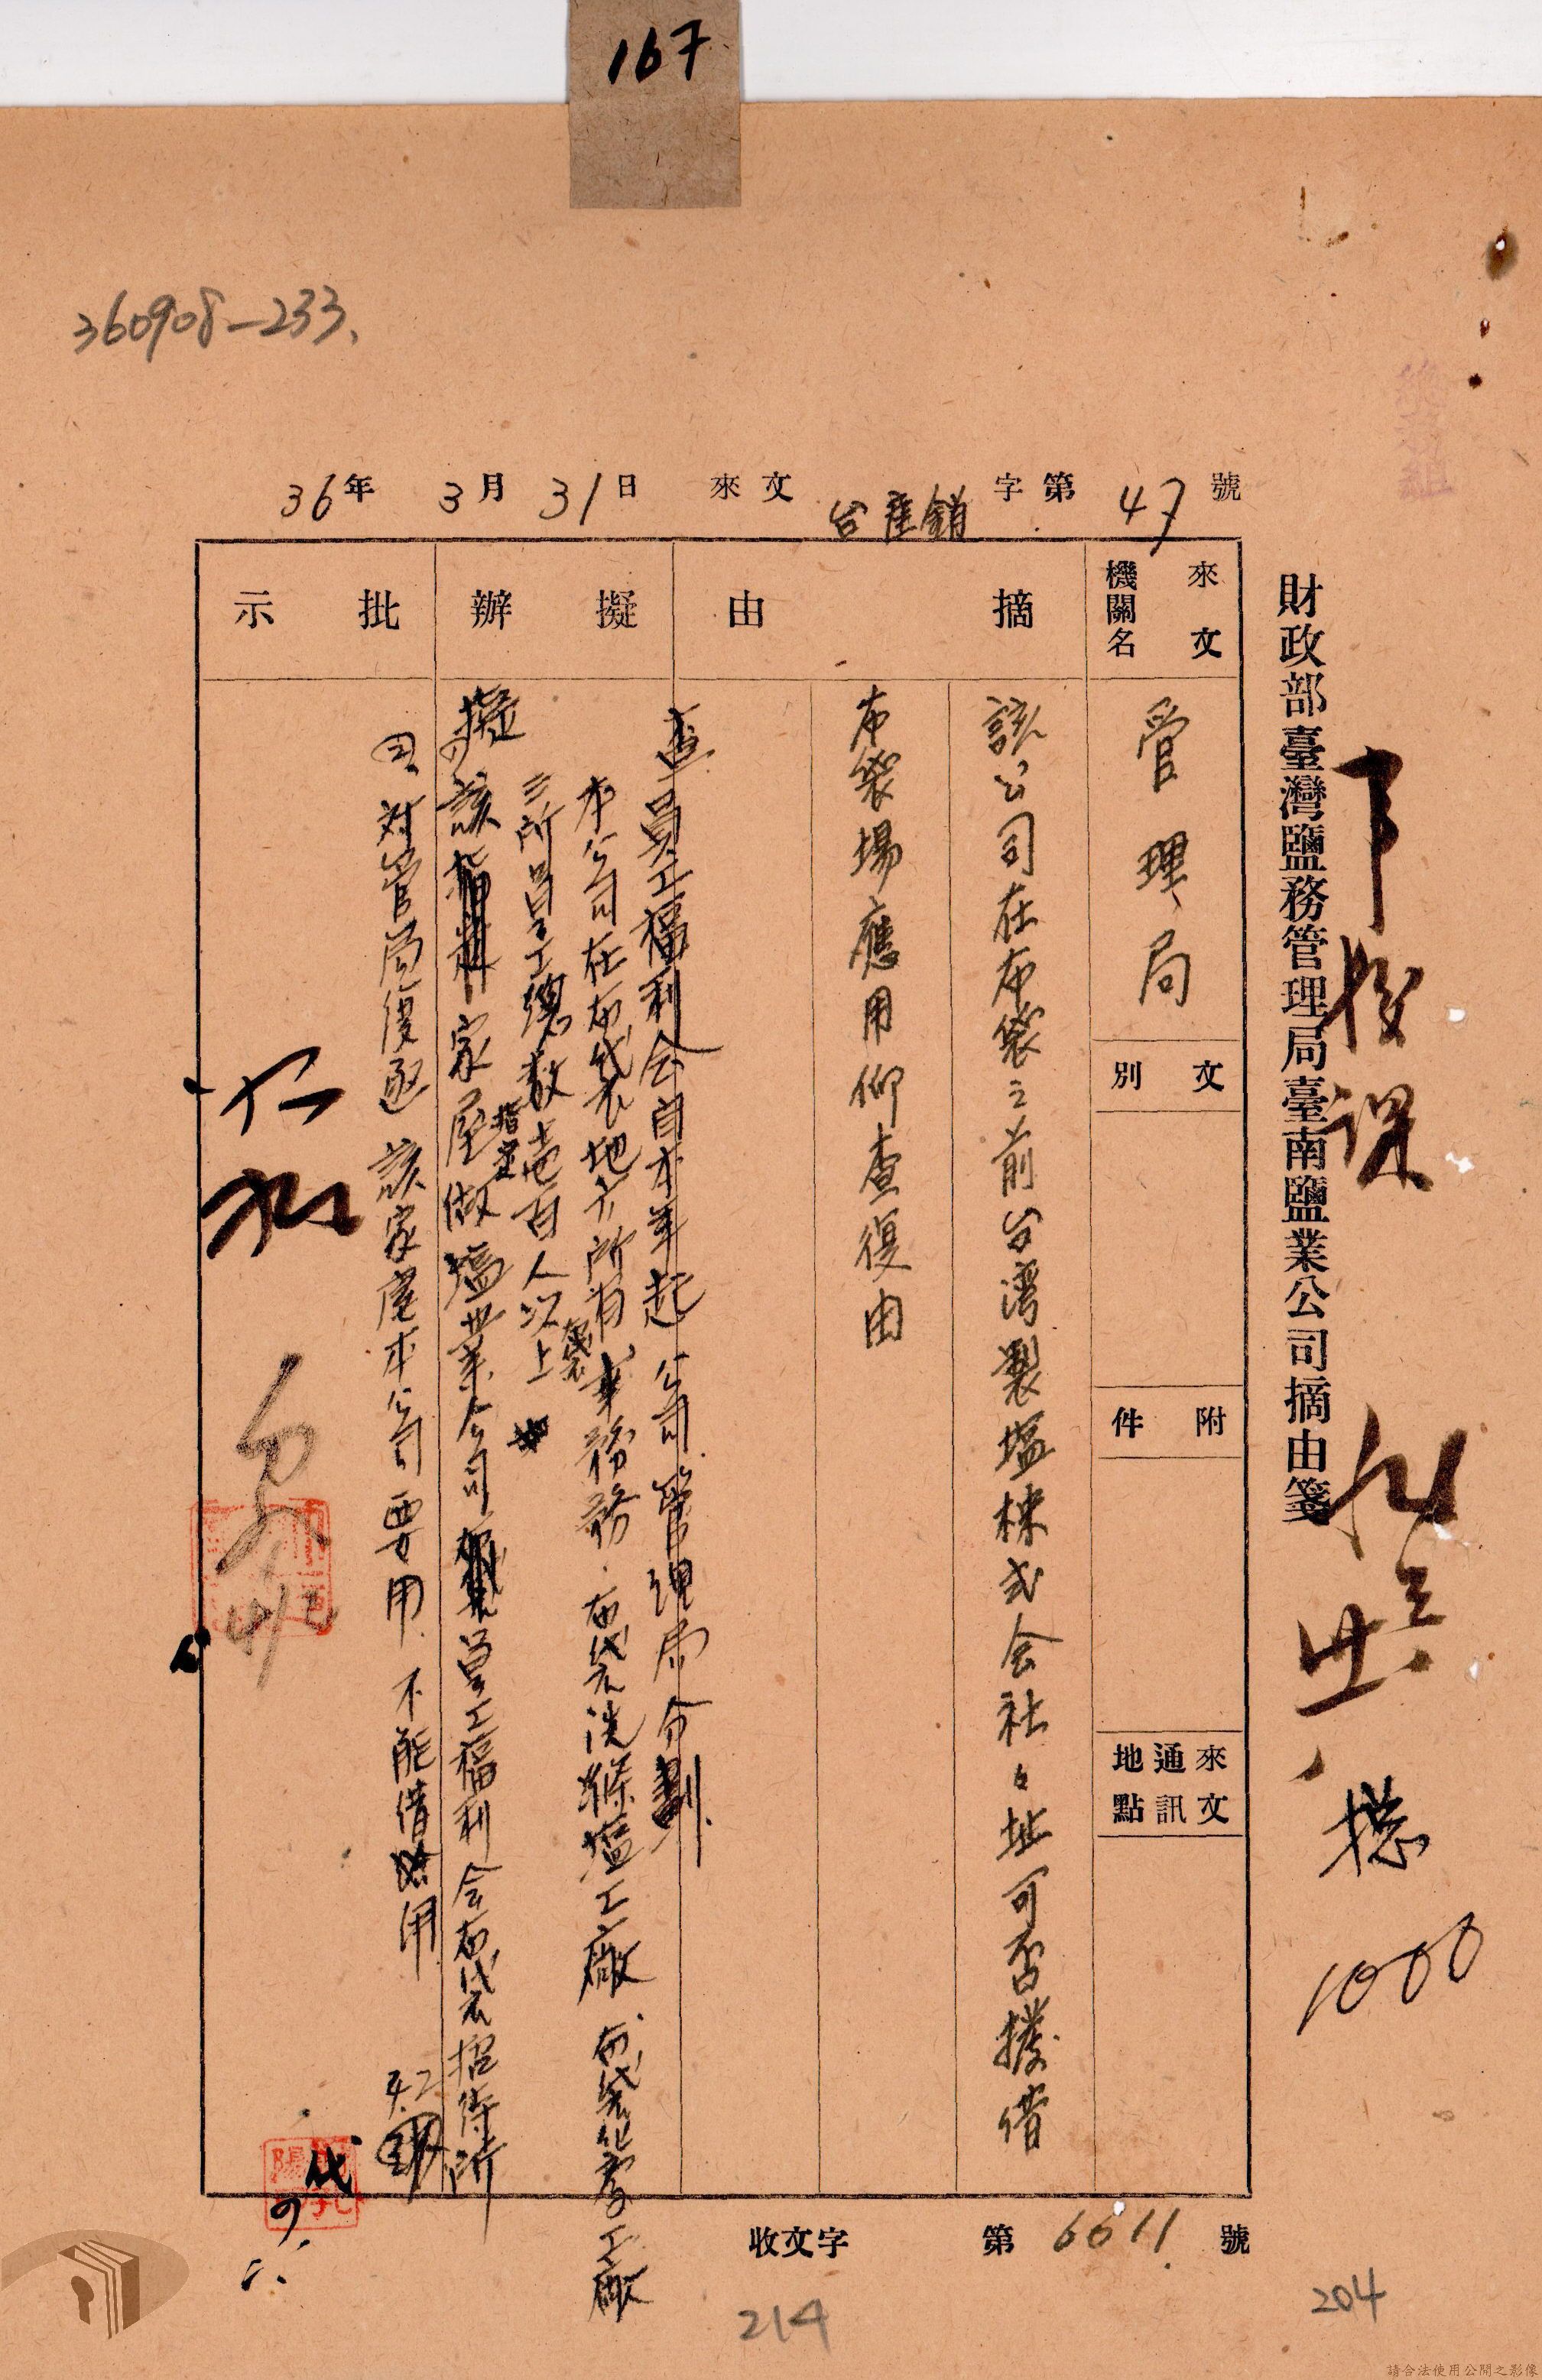 167
360908-233.
36年3月31日 來文 台産銷字第47號
財政部臺灣鹽務管理局臺南鹽業公司摘由箋
課
1000
來文機關名
管理局
文別
附件
來文通訊地點
摘由
該公司在布袋之前台湾製塩株式会社々址可否撥借
布袋場應用仰查復由
擬辦
查員工福利会自本年起公司管理局分劃
本公司在布袋地方所有布袋業務務.布袋洗滌塩工廠.布袋化学工廠
三所員工總数壱百人以上
擬該家屋指定做塩業公司員工福利会布袋招待所
批示
対管局復函 該家屋本公司要用.不能借用
4.2
代
收文字第6611號
214
204
請合法使用公開之影像